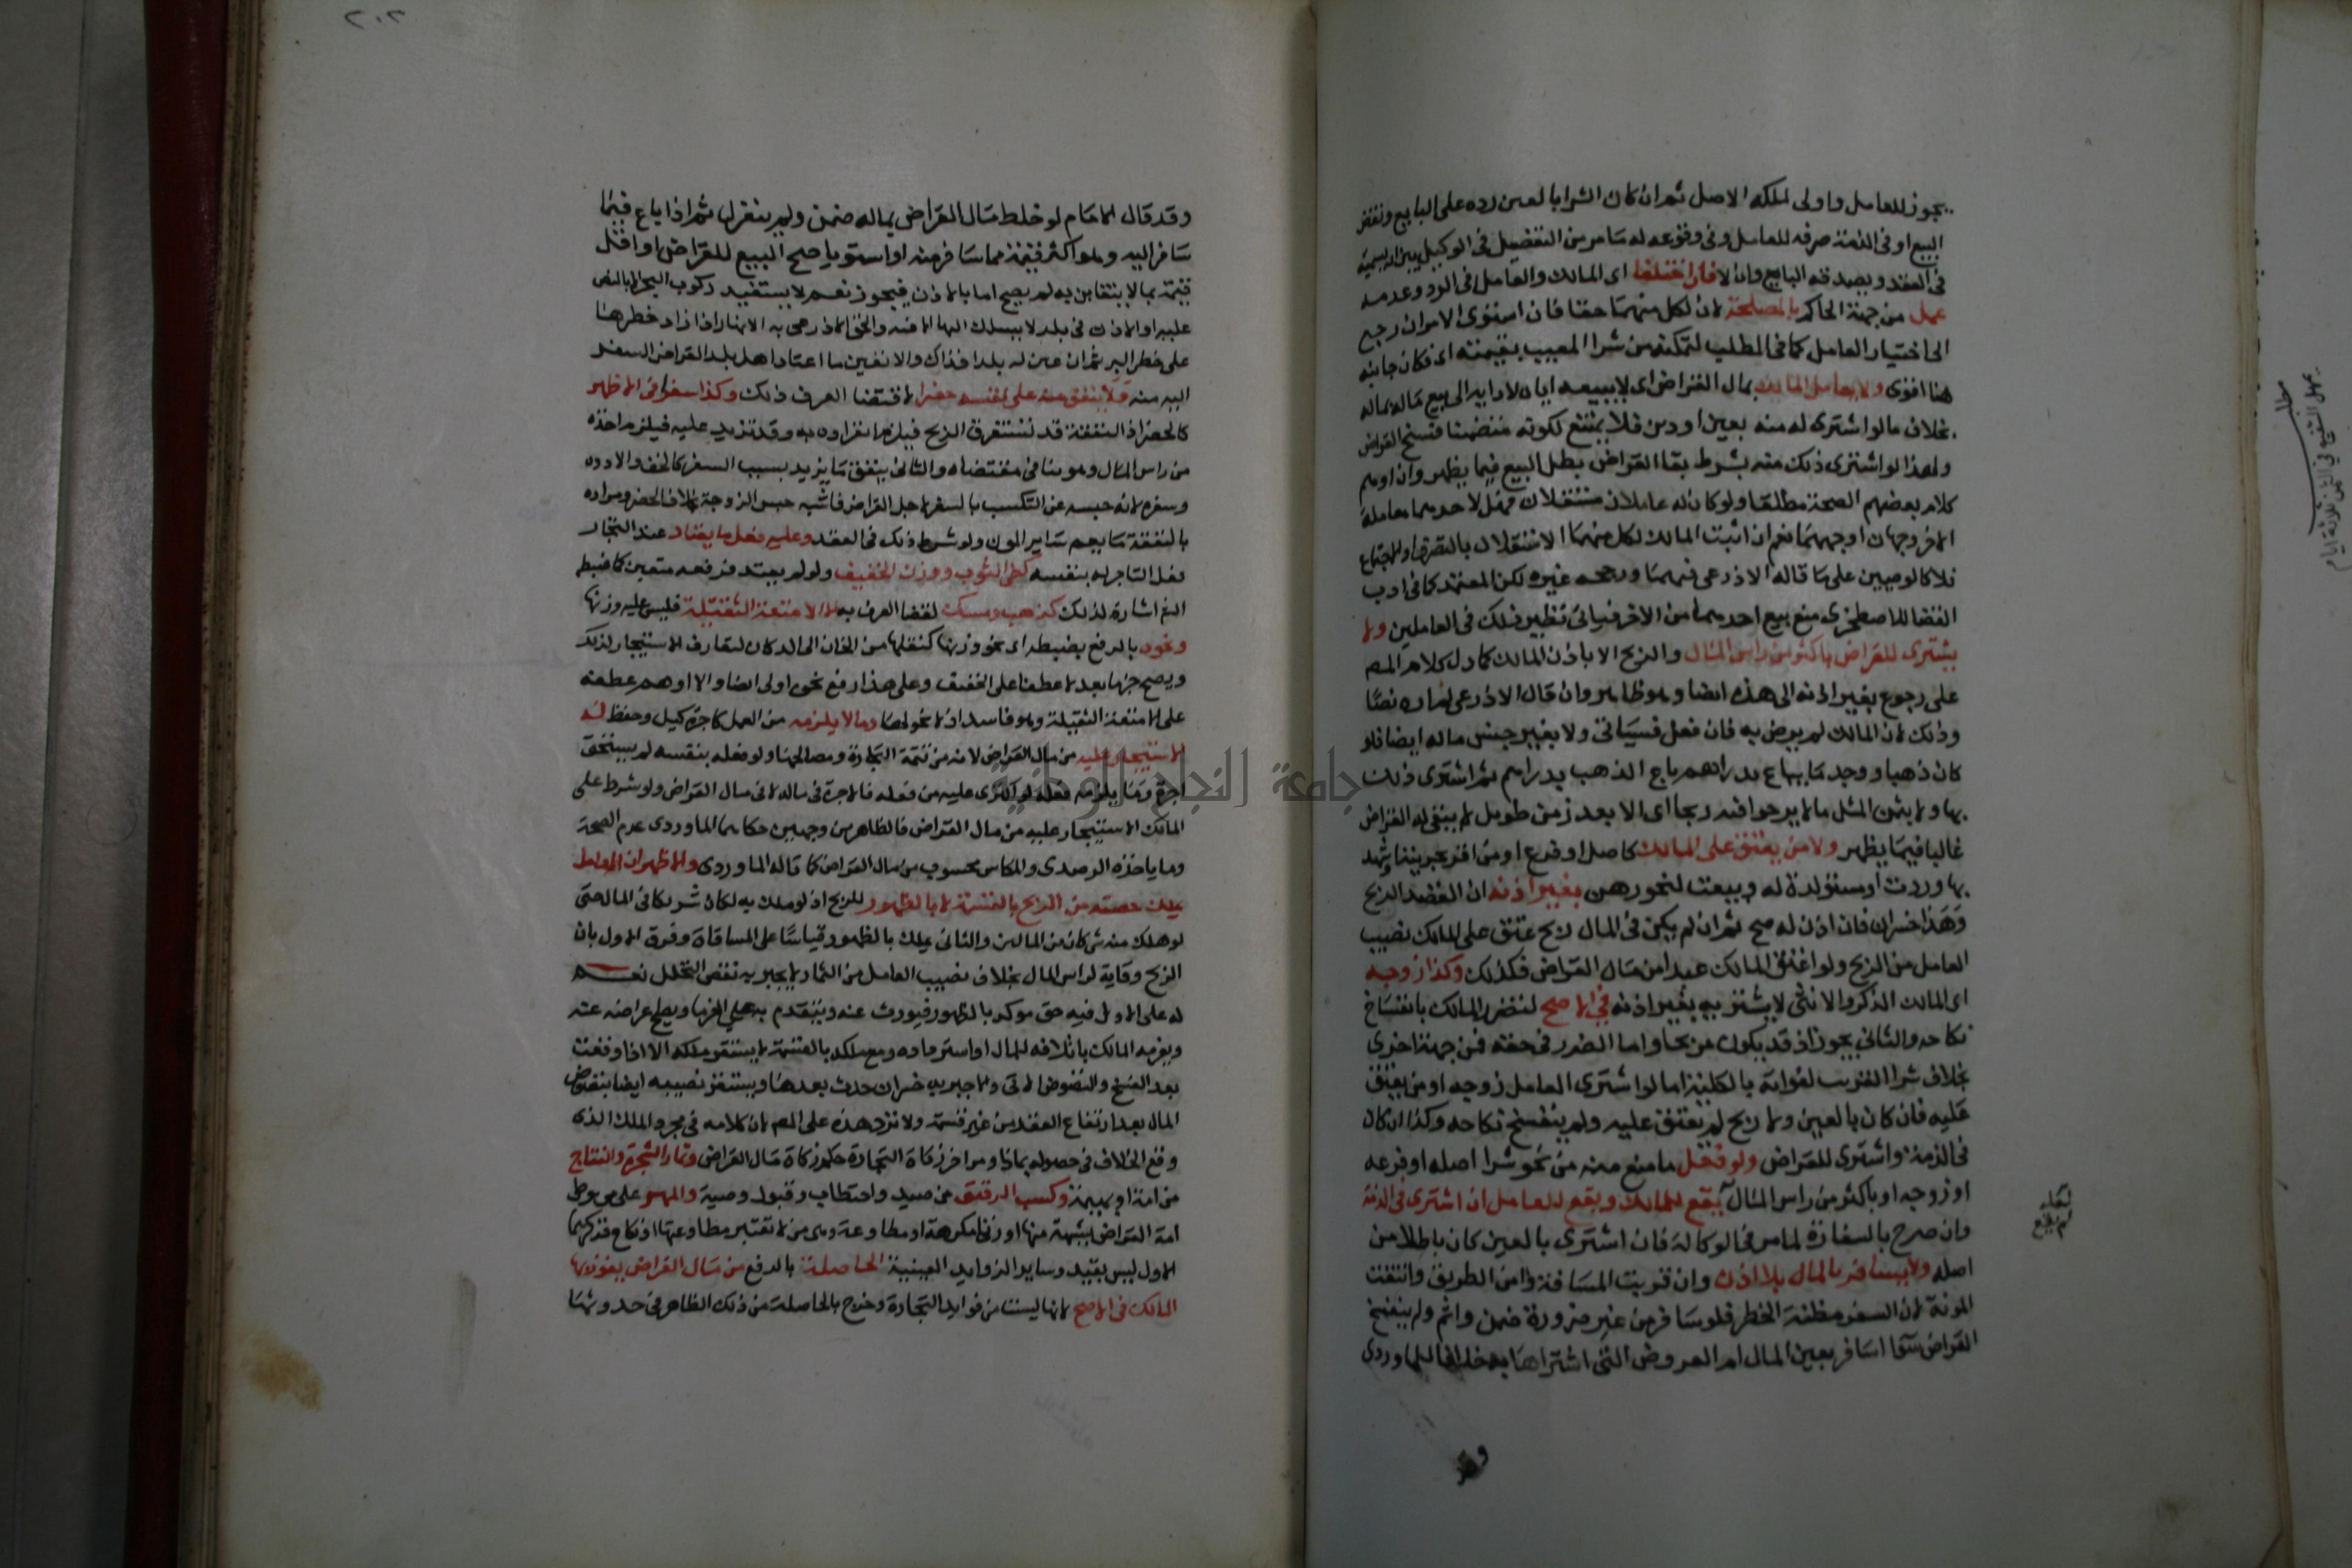 يجوز للعامل واولى لملكه الاصل ثم ان كان الشرا بالعين رده على البايع ونقض
البيع او فى الذمة صرفه للعامل وفى وقوعه له ما مر من التفصيل فى الوكيل بين ان يسميه
فى العقد ويصدقه البايع وان لا فان اختلفا اى المالك والعامل فى الرد وعدمه
عمل من جهة الحاكم بالمصلحة لان لكل منهما حقا فان استوى الامران رجع
الى اختيار العامل كما فى المطلب لتمكنه من شرا المعيب بقيمته اى فكان جانبه
هنا اقوى ولا يعامل المالك بمال القراض اى لا يبيعه اياه لادايه الى بيع ماله بماله
بخلاف ما لو اشترى له منه بعين او دين فلا يمتنع لكونه متضمنا فسخ القراض
ولهذا لو اشترى ذلك منه بشرط بقا القراض بطل البيع فيما يظهر وان اوهم
كلام بعضهم الصحة مطلقا ولو كان له عاملان مستقلان فهل لاحدهما معاملة
الاخر وجهان اوجههما نعم ان اثبت المالك لكل منهما الاستقلال بالتصرف او الاجتماع
فلا كالوصيين على ما قاله الاذرعى فيهما ورجحه غيره لكن المعتمد كما فى ادب
القضا للاصطخرى منع بيع احدهما من الاخر فياتى نظير ذلك فى العاملين ولا
يشترى للقراض باكثر من راس المال والربح الا باذن المالك كما دل كلام المص
على رجوع بغير اذنه الى هذه ايضا وهو ظاهر وان قال الاذرعى لم اره نصا
وذلك لان المالك لم يرض به فان فعل فسياتى ولا بغير جنس ماله ايضا فلو
كان ذهبا ووجد ما يباع بدراهم باع الذهب بدراهم ثم اشترى ذلك
بها ولا بثمن المثل ما لا يرجو فيه ربحا اى الا بعد زمن طويل لا يبقى له القراض
غالبا فيما يظهر ولا من يعتق على المالك كاصل او فرع او من اقر بحريته او شهد
بها وردت او مستولدة له وبيعت لنحو رهن بغير اذنه ان القصد الربح
وهذا خسران فان اذن له صح ثم ان لم يكن فى المال ربح عتق على المالك نصيب
العامل من الربح ولو اعتق المالك عبدا من مال القراض فكذلك وكذا زوجه
اى المالك الذكر والانثى لا يشتريه بغير اذنه فى الاصح لتضرر المالك بانفساخ
نكاحه والثانى يجوز اذ قد يكون مربحا واما الضرر فى حقه فمن جهة اخرى
بخلاف شرا القريب لفواته بالكلية اما لو اشترى العامل زوجه او من يعتق
عليه فان كان بالعين ولا ربح لم يعتق عليه ولم ينفسخ نكاحه وكذا ان كان
فى الذمة واشترى للقراض ولو فعل ما منع منه من نحو شرا اصله او فرعه
او زوجه او باكثر من راس المال يقع للمالك ويقع للعامل ان اشترى فى الذمة
لم يقع
وان صرح بالسفارة لما مر فى الوكالة فان اشترى بالعين كان باطلا من
اصله ولا يسافر بالمال بلا اذن وان قربت المسافة وامن الطريق وانتفت
المونة لان السفر مظنة الخطر فلو سافر من غير ضرورة ضمن واثم ولم ينفسخ
القراض سوا اسافر بعين المال ام العروض التى اشتراها به خلافا للماوردى
وقد
مطلب
يمهل الشفيع فى الثمن ثلاثة ايام
٢٠٢
وقد قال الامام لو خلط مال القراض بماله ضمن ولم ينعزل ثم اذا باع فيما
سافر اليه وهو اكثر قيمة مما سافر منه او استويا صح البيع للقراض او اقل
قيمة بما لا يتغابن به لم يصح اما بالاذن فيجوز نعم لا يستفيد ركوب البحر الا بالنص
عليه او الاذن فى بلد لا يسلك اليها الا فيه والحق الاذرعى به الانهار اذا زاد خطرها
على خطر البر ثم ان عين له بلدا فذاك والا تعين ما اعتاد اهل بلد القراض السفر
اليه منه ولا ينفق منه على نفسه حضرا لاقتضا العرف ذلك وكذا سفرا فى الاظهر
كالحضر اذ النفقة قد تستغرق الربح فيلزم انفراده به وقد تزيد عليه فيلزم اخذه
من راس المال وهو ينافى مقتضاه والثانى ينفق ما يزيد بسبب السفر كالخف والادوه
وسفره لانه حبسه عن التكسب بالسفر لاجل القراض فاشبه حبس الزوجة بخلاف الحضر ومراده
بالنفقة ما يعم ساير المون ولو شرط ذلك فى العقد وعليه فعل ما يعتاد عند التجار
فعل التاجر له بنفسه كطى الثوب ووزن الخفيف ولو لم يعتد فرفعه متعين كما ضبطه
ثم اشارة لذلك كذهب ومسك لقضا العرف به لا الامتعة الثقيلة فليس عليه وزنها
ونحوه بالرفع بضبطه اى نحو وزنها كنقلها من الخان الى الدكان لتعارف الاستيجار لذلك
ويصح جرها بعد لا عطفا على الخفيف وعلى هذا رفع نحوه اولى ايضا والا اوهم عطفه
على الامتعة الثقيلة وهو فاسد اذ لا نحو لها وما لا يلزمه من العمل كاجرة كيل وحفظ له
الاستيجار عليه من مال القراض لانه من تتمة التجارة ومصالحها ولو فعله بنفسه لم يستحق
اجرة وما يلزمه فعله لو اكترى عليه من فعله فالاجرة فى ماله لا فى مال القراض ولو شرط على
المالك الاستيجار عليه من مال القراض فالظاهر من وجهين حكاهما الماوردى عدم الصحة
وما ياخذه الرصدى والمكاس محسوب من مال القراض كما قاله الماوردى والاظهر ان العامل
يملك حصته من الربح بالقسمة لا بالظهور للربح اذ لو ملك به لكان شريكا فى المال حتى
لو هلك منه شى كان من المالين والثانى يملك بالظهور قياسا على المساقاة وفرق الاول بان
الربح وقاية لراس المال بخلاف نصيب العامل من الثمار لا يجبر به نقص النخل نعم
له على الاول فيه حق موكد بالظهور فيورث عنه ويتقدم به على الغرما ويصح اعراضه عنه
ويغرمه المالك باتلافه للمال او استرداده ومع ملكه بالقسمة لا يستقر ملكه الا اذا وقعت
بعد الفسخ والنضوض الاتى والا جبر به خسران حدث بعدها ويستقر نصيبه ايضا بنضوض
المال بعد ارتفاع العقد من غير قسمة ولا ترد هذه على المص لان كلامه فى مجرد الملك الذى
وقع الخلاف فى حصوله بماذا ومر اخر زكاة التجارة حكم زكاة مال القراض وثمار الشجرة والنتاج
من امة او بهيمة وكسب الرقيق من صيد واحتطاب وقبول وصية والمهر على من وطى
امة القراض بشبهة منها او زنى مكرهة او مطاوعة وهى من لا تعتبر مطاوعتها او نكاح فذكرهما
الاول ليس بقيد وساير الزوايد العينية الحاصلة بالرفع من مال القراض يفوز بها
المالك فى الاصح لانها ليست من فوايد التجارة وخرج بالحاصلة من ذلك الظاهر فى حدوثها